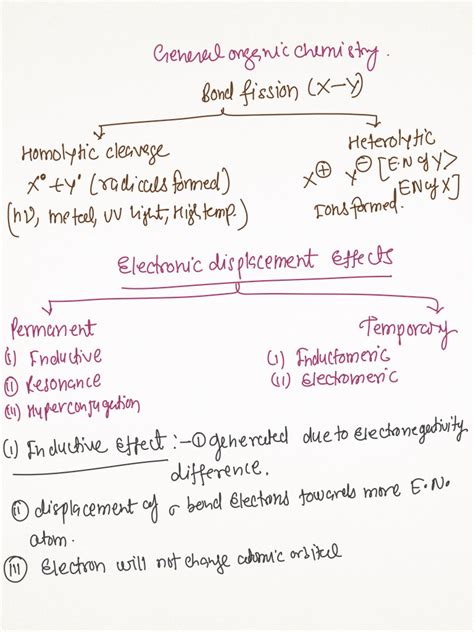 General organic chemistry.
Bond fission (X-Y)
Homolytic cleavage
X° + Y° (radicals formed)
(hν, metal, UV light, High temp.)
Heterolytic
X⊕ Y⊖ [E.N of Y >
EN of X]
Ions formed.
Electronic displacement Effects
Permanent
(i) Inductive
(ii) Resonance
(iii) Hyperconjugation
Temporary
(i) Inductomeric
(ii) Electromeric
(i) Inductive Effect :- (i) generated due to Electronegativity
difference.
(ii) displacement of σ bond Electrons towards more E.N.
atom.
(iii) Electron will not change atomic orbital